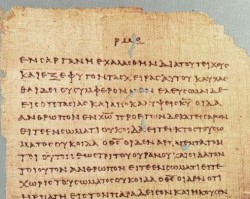 ΕΝ ϹΑΡΓΑΝΗ ΕΧΑΛΑϹΘΗΝ ΔΙΑ ΤΟΥ ΤΕΙΧΟΥϹ
ΚΑΙ ΕΞΕΦΥΓΟΝ ΤΑϹ ΧΕΙΡΑϹ ΑΥΤΟΥ ΚΑΥΧΑϹ
ΘΑΙ ΔΕΙ ΟΥ ϹΥΜΦΕΡΟΝ ΜΕΝ ΕΛΕΥϹΟΜΑΙ ΔΕ
ΕΙϹ ΟΠΤΑϹΙΑϹ ΚΑΙ ΑΠΟΚΑΛΥΨΕΙϹ Κ̅Υ̅ ΟΙΔΑ
ΑΝΘΡΩΠΟΝ ΕΝ Χ̅Ω̅ ΠΡΟ ΕΤΩΝ ΔΕΚΑΤΕϹϹΑΡΩΝ
ΕΙΤΕ ΕΝ ϹΩΜΑΤΙ ΟΥΚ ΟΙΔΑ ΕΙΤΕ ΕΚΤΟϹ ΤΟΥ ϹΩΜΑ
ΤΟϹ ΟΥΚ ΟΙΔΑ Ο Θ̅Ϲ̅ ΟΙΔΕΝ ΑΡΠΑΓΕΝΤΑ ΤΟΝ
ΤΟΙΟΥΤΟΝ ΕΩϹ ΤΡΙΤΟΥ ΟΥΡΑΝΟΥ ΚΑΙ ΟΙΔΑ ΤΟΝ
ΤΟΙΟΥΤΟΝ ΑΝΘΡΩΠΟΝ ΕΙΤΕ ΕΝ ϹΩΜΑΤΙ ΕΙΤΕ
ΧΩΡΙϹ ΤΟΥ ϹΩΜΑΤΟϹ ΟΥΚ ΟΙΔΑ Ο Θ̅Ϲ̅ ΟΙΔΕΝ ΟΤΙ
ΗΡΠΑΓΗ ΕΙϹ ΤΟΝ ΠΑΡΑΔΕΙϹΟΝ ΚΑΙ ΗΚΟΥϹΕΝ